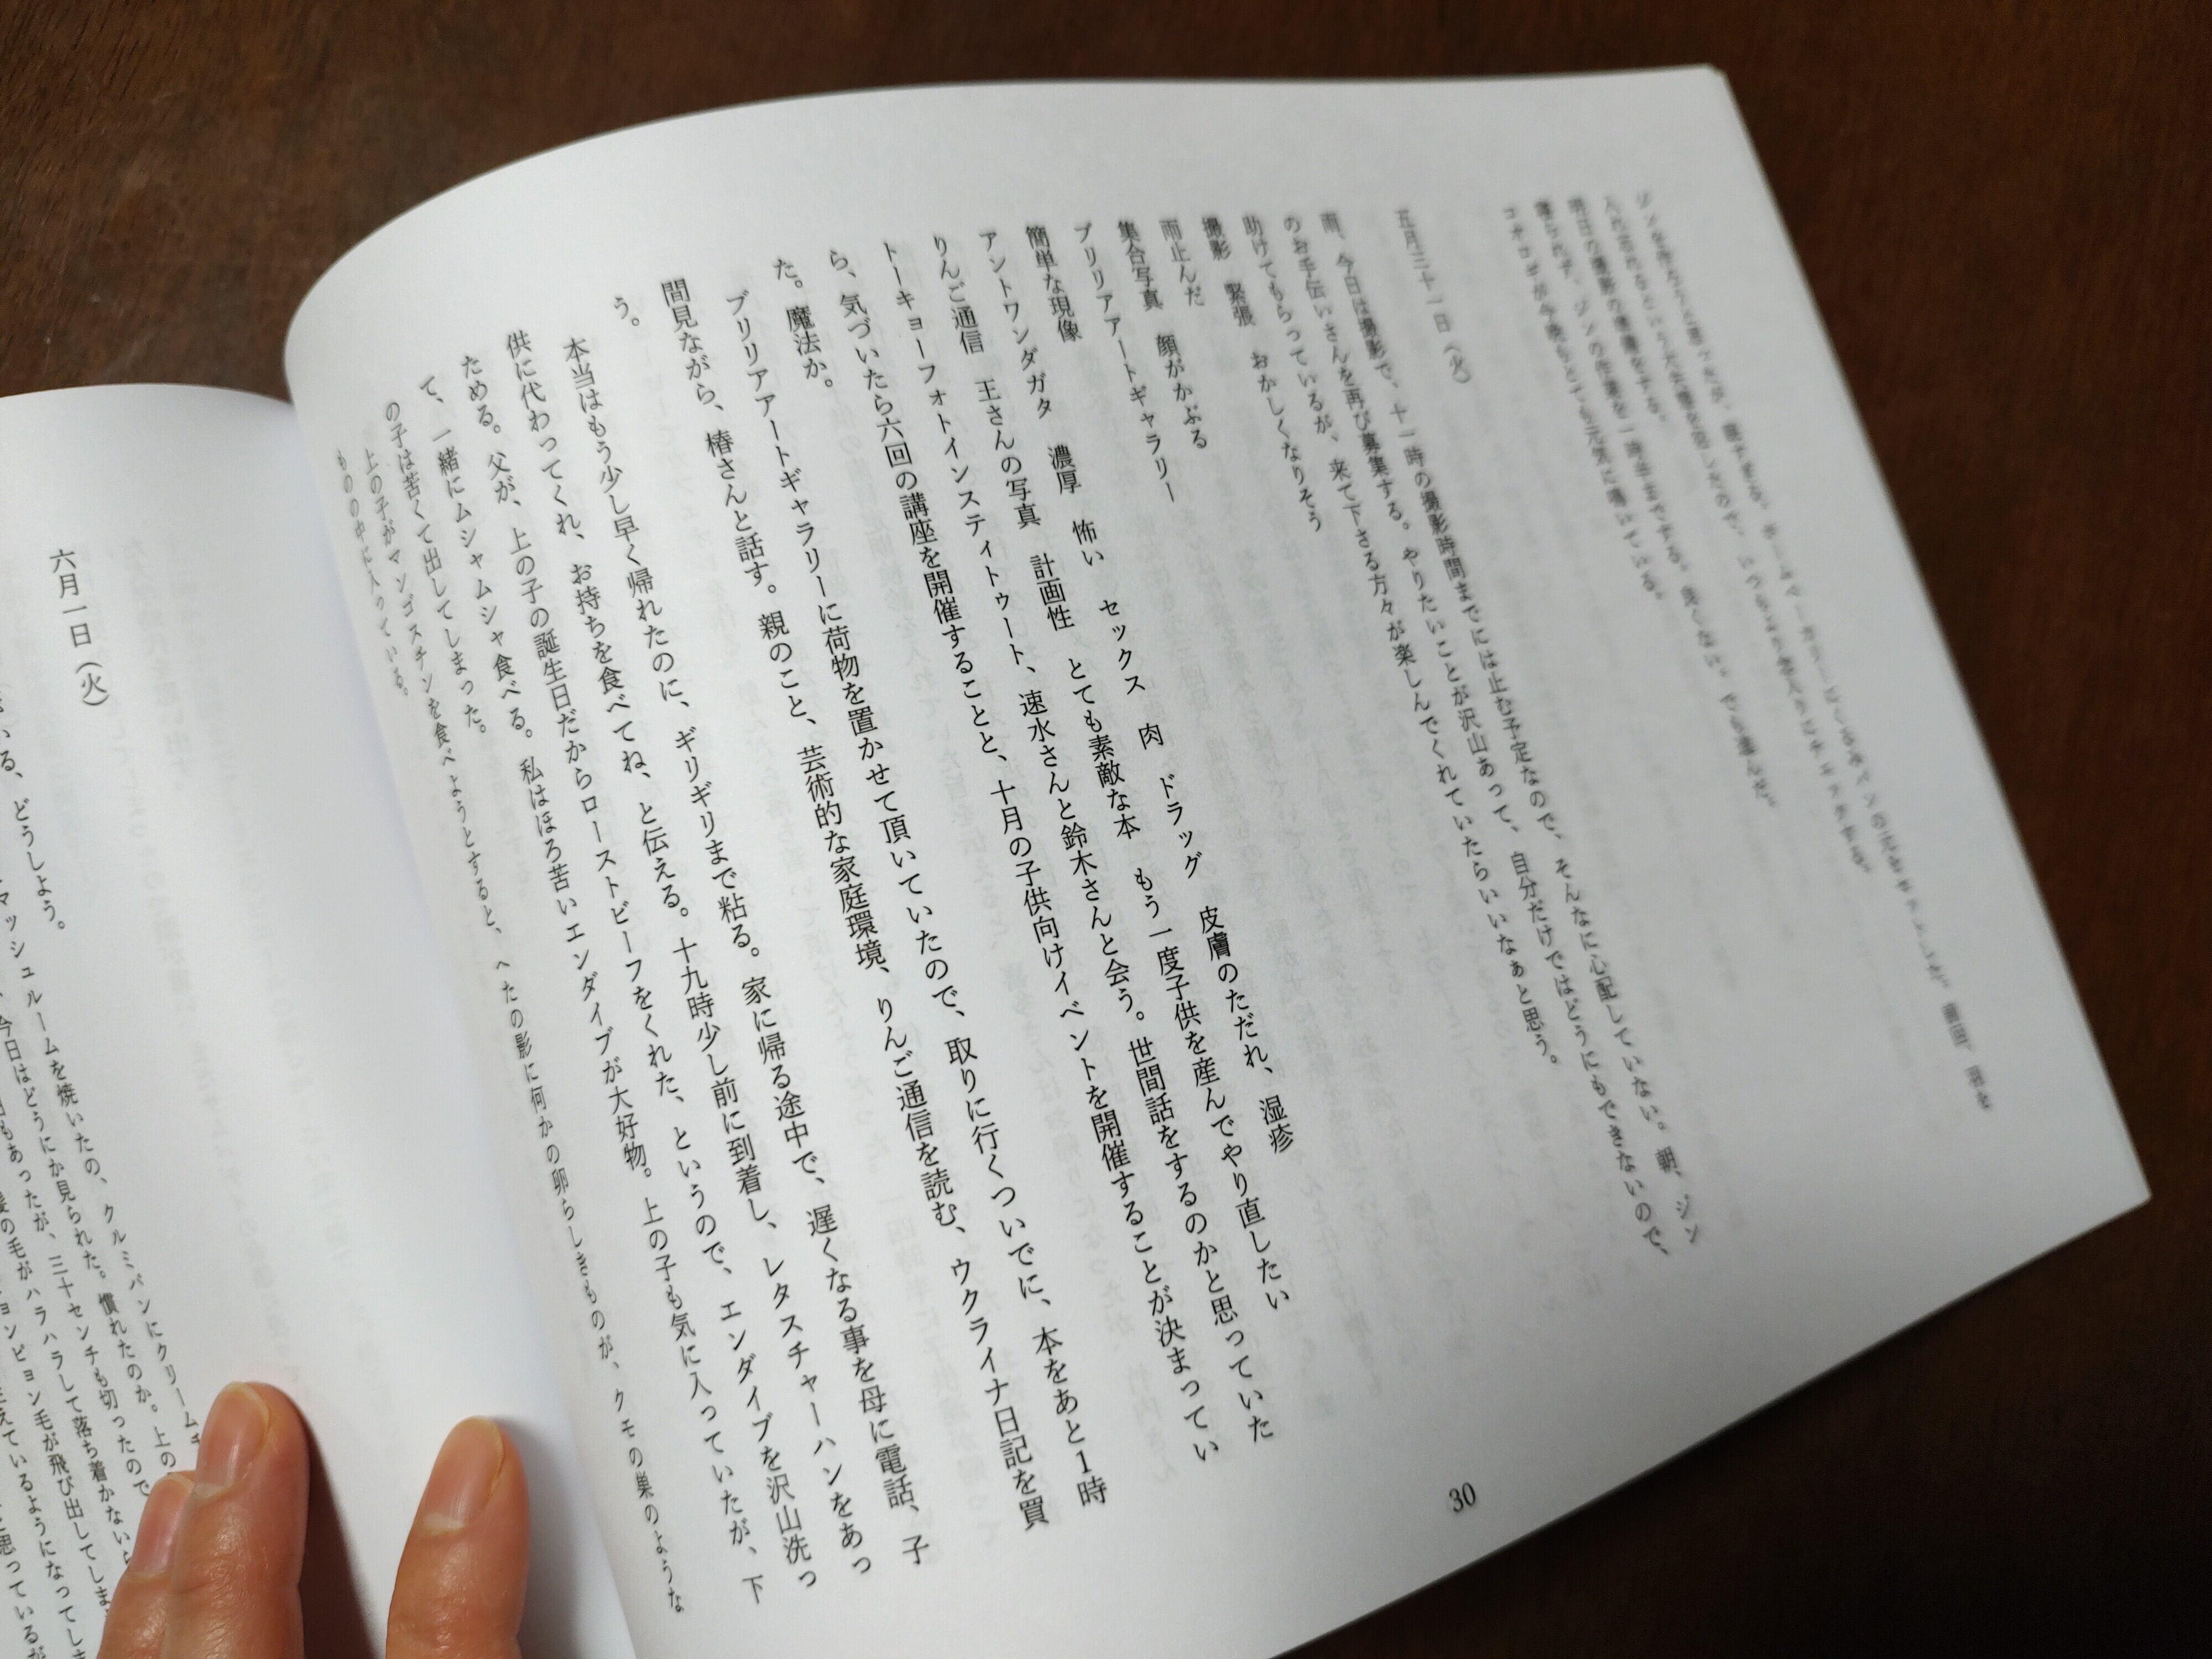 ジンを作ろうと思ったが、眠すぎる。ホームベーカリーにくるみパンの元をセットした。前回、羽を
入れ忘れるという大失態を犯したので、いつもより念入りにチェックする。
明日の撮影の準備をする。
寝られず、ジンの作業を一時半までする。良くない。でも進んだ。
コオロギが今晩もとても元気に鳴いている。
五月三十一日（火）
雨、今日は撮影で、十一時の撮影時間までには止む予定なので、そんなに心配していない。朝、ジン
のお手伝いさんを再び募集する。やりたいことが沢山あって、自分だけではどうにもできないので、
助けてもらっているが、来て下さる方々が楽しんでくれていたらいいなぁと思う。
撮影 緊張 おかしくなりそう
雨止んだ
集合写真 顔がかぶる
ブリリアアートギャラリー
簡単な現像
アントワンダガタ 濃厚 怖い セックス 肉 ドラッグ 皮膚のただれ、湿疹
りんご通信 王さんの写真 計画性 とても素敵な本 もう一度子供を産んでやり直したい
トーキョーフォトインスティトゥート、速水さんと鈴木さんと会う。世間話をするのかと思っていた
ら、気づいたら六回の講座を開催することと、十月の子供向けイベントを開催することが決まってい
た。魔法か。
ブリリアアートギャラリーに荷物を置かせて頂いていたので、取りに行くついでに、本をあと1時
間見ながら、椿さんと話す。親のこと、芸術的な家庭環境、りんご通信を読む、ウクライナ日記を買
う。
本当はもう少し早く帰れたのに、ギリギリまで粘る。家に帰る途中で、遅くなる事を母に電話、子
供に代わってくれ、お持ちを食べてね、と伝える。十九時少し前に到着し、レタスチャーハンをあっ
ためる。父が、上の子の誕生日だからローストビーフをくれた、というので、エンダイブを沢山洗っ
て、一緒にムシャムシャ食べる。私はほろ苦いエンダイブが大好物。上の子も気に入っていたが、下
の子は苦くて出してしまった。
上の子がマンゴスチンを食べようとすると、へたの影に何かの卵らしきものが、クモの巣のような
ものの中に入っている。
30
六月一日（火）
いる、どうしよう。
マッシュルームを焼いたの、クルミパンにクリームチ
今日はどうにか見られた。慣れたのか。上の
もあったが、三十センチも切ったので
の毛がハラハラして落ち着かないら
ョンピョン毛が飛び出してしま
えているようになってしま
思っているが